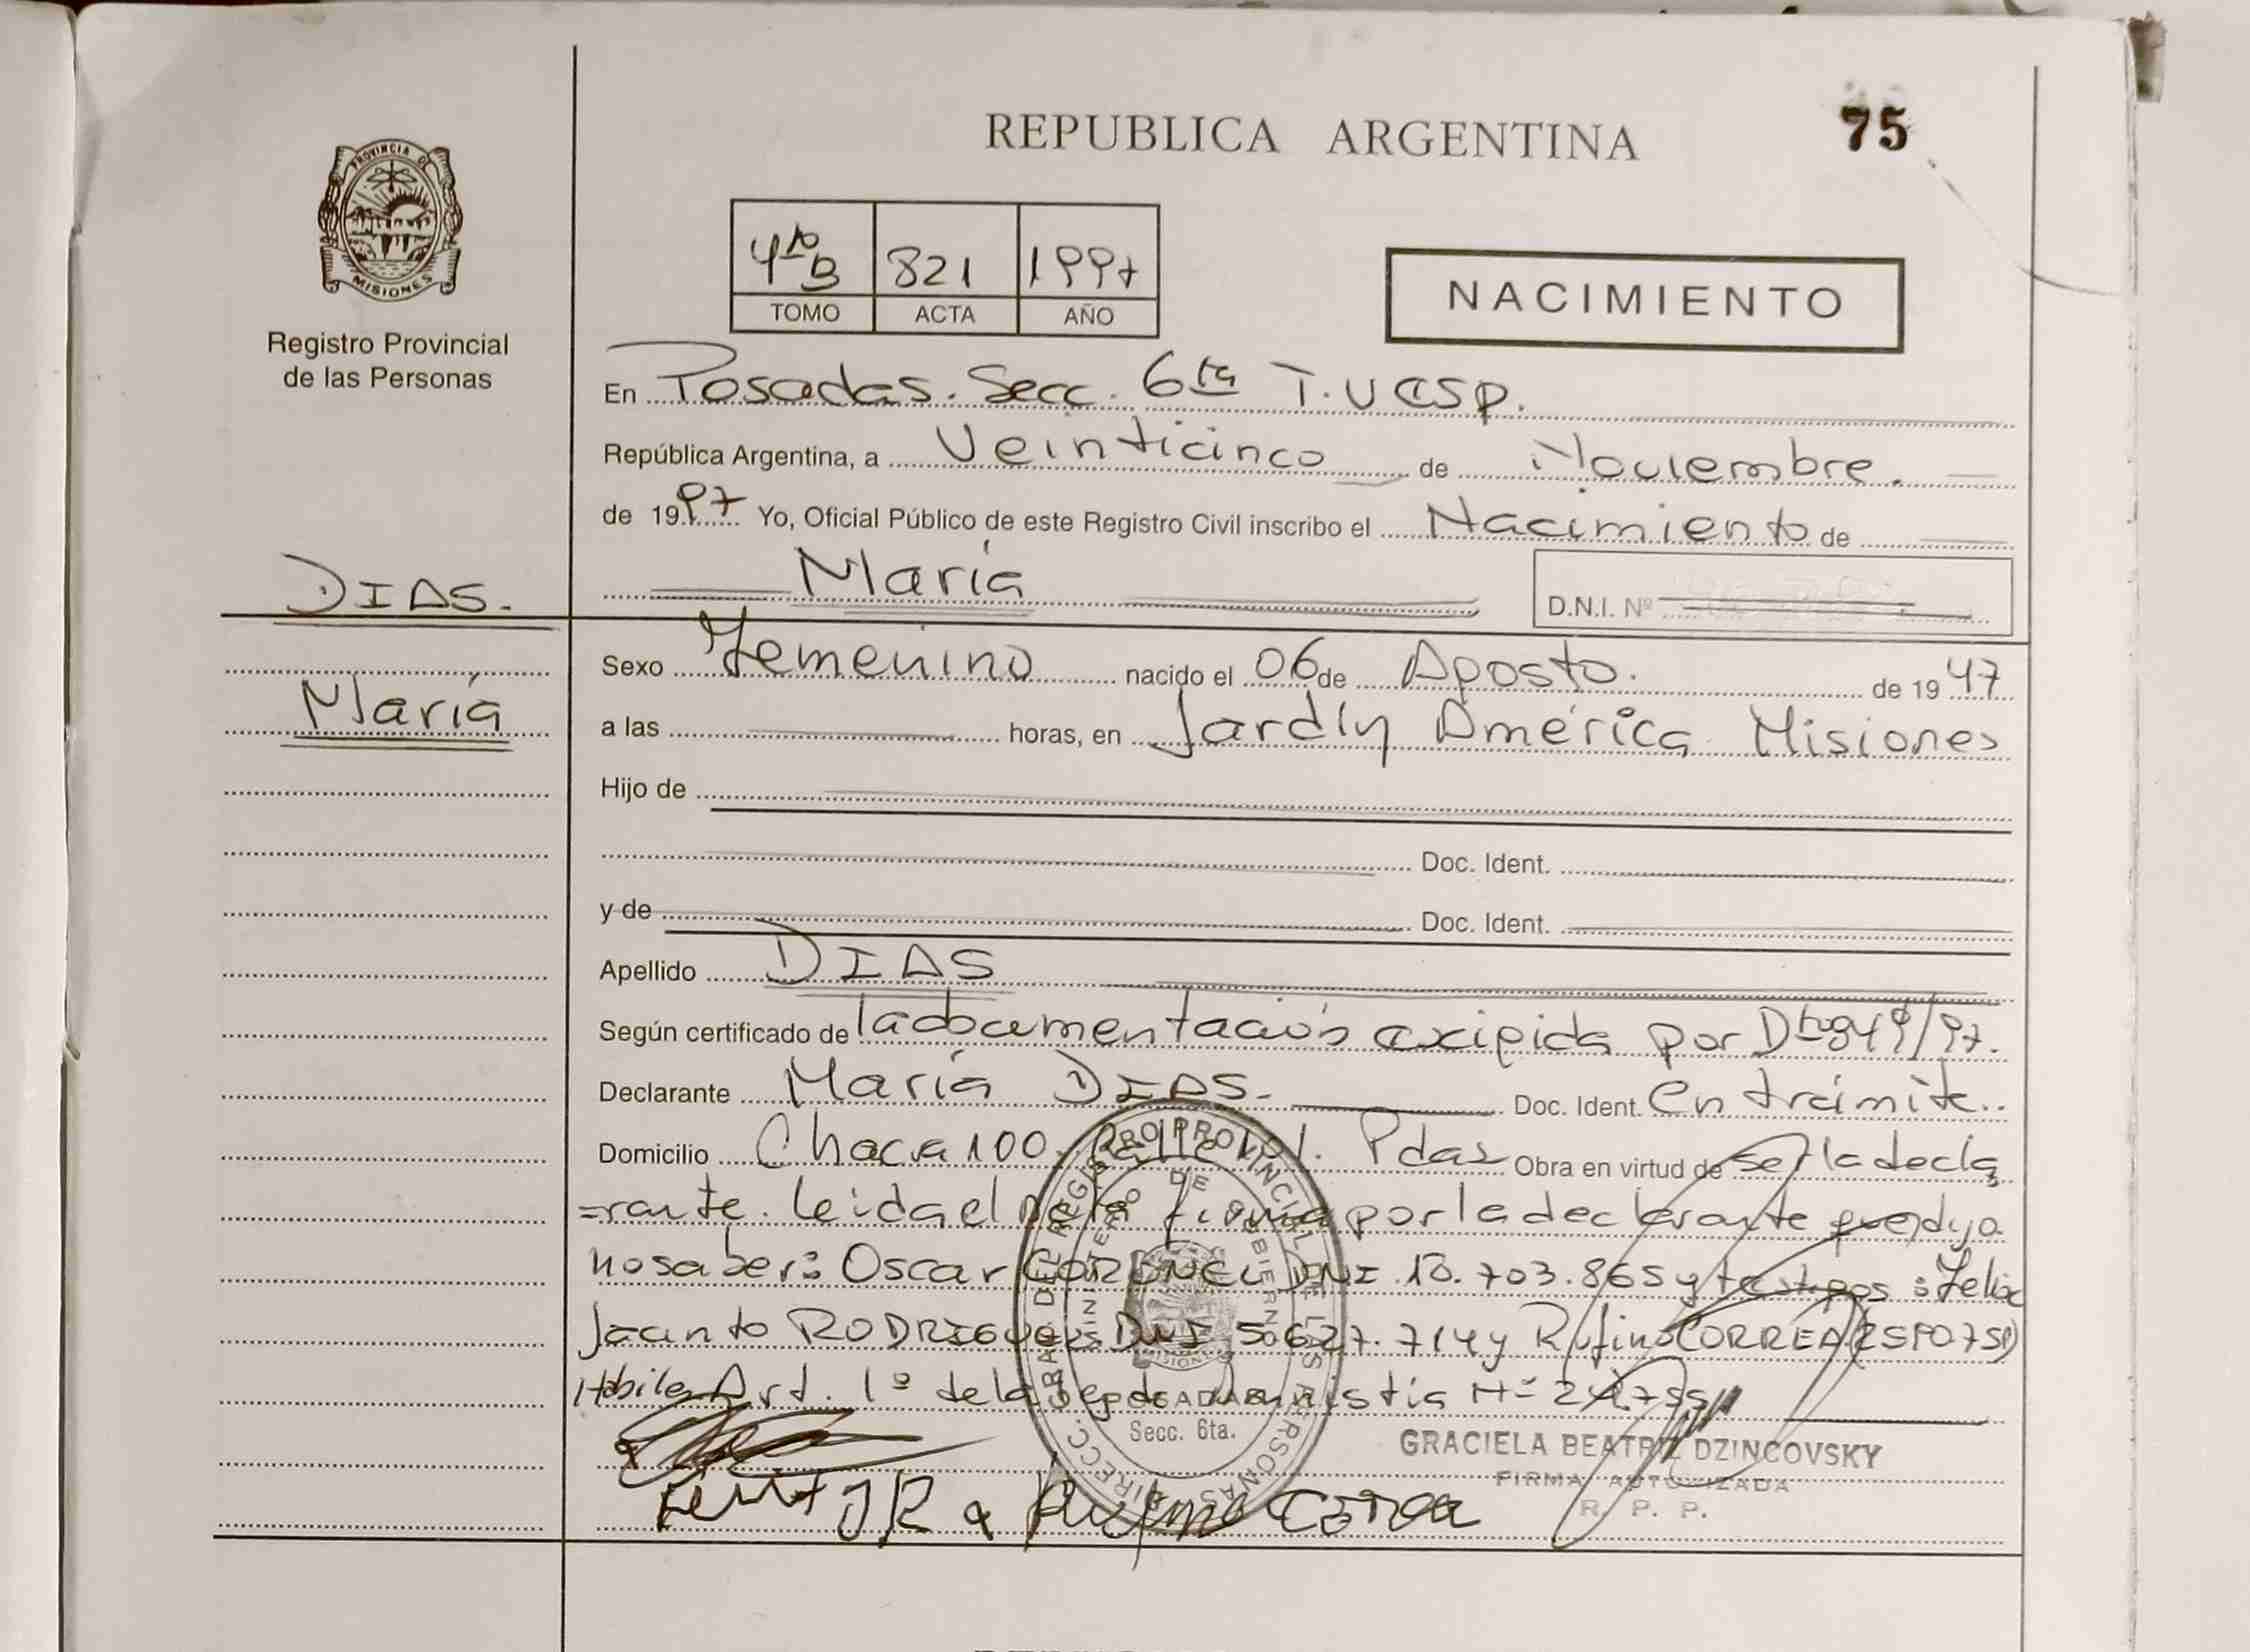 REPUBLICA ARGENTINA
75
PROVINCIA DE
MISIONES
Registro Provincial
de las Personas
4to B 821 1997
TOMO ACTA AÑO
NACIMIENTO
En Posadas. Secc. 6ta T. Uasp.
República Argentina, a Veinticinco de Noviembre.
de 1997 Yo, Oficial Público de este Registro Civil inscribo el Nacimiento de
DIAS.
María
D.N.I. Nº
Sexo Femenino nacido el 06 de Agosto. de 1947
María
a las horas, en Jardín América Misiones
Hijo de
Doc. Ident.
y de Doc. Ident.
Apellido DIAS
Según certificado de la documentación exigida por Dto 849/97.
Declarante María DIAS. Doc. Ident. en trámite..
Domicilio Chacra 100. Calle Pdas Obra en virtud de ser la decla
=rante. Leída el acta firma por la declarante que dijo
no saber: Oscar CORONEL DNI 18.703.865 y testigos: Felix
Jacinto RODRIGUEZ DNI 5.627.714 y Rufino CORREA
Art. 1º de la Ley de Amnistia Nº
DIRECC. GRAL DEL REGISTRO PROVINCIAL DE LAS PERSONAS
MINISTERIO DE GOBIERNO
MISIONES
POSADAS
Secc. 6ta.
GRACIELA BEATRIZ DZINCOVSKY
FIRMA AUTORIZADA
R. P. P.